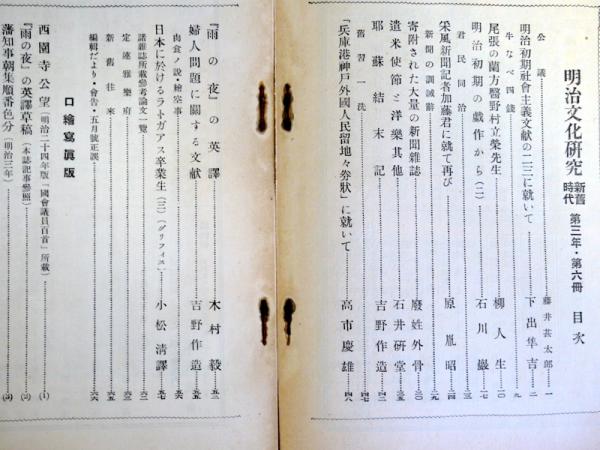 明治文化研究 新舊時代 第三年・第六冊 目次
公議 藤井甚太郎 一
明治初期社會主義文献の二三に就いて 下出隼吉 二
牛なべ四錢 九
尾張の蘭方醫野村立榮先生 柳人生 一〇
明治初期の戯作から(二) 石川巖 一七
君民同治
采風新聞記者加藤君に就て再び 原胤昭 二四
新聞の訓誡辭
寄附された大量の新聞雜誌 廢姓外骨 三〇
遣米使節と洋樂其他 石井研堂
耶蘇結末記 吉野作造 四二
舊習一洗 四七
「兵庫港神戸外國人民留地々券狀」に就いて 高市慶雄 四八
『雨の夜』の英譯 木村毅 五三
婦人問題に關する文献 吉野作造 五五
肉食ノ說・繪空事 五六
日本に於けるラトガアス卒業生(三)(グリフィス) 小松淸譯 五七
諸雜誌所載參考論文一覽 六二
定遠雅樂府
新舊往來
編輯だより・會告・五月號正誤 六六
口繪寫眞版
西園寺公望(明治二十四年版「國會議員百首」所載) (1)
『雨の夜』の英譯草稿(本誌記事參照) (2)
藩知事朝集順番色分(明治三年)